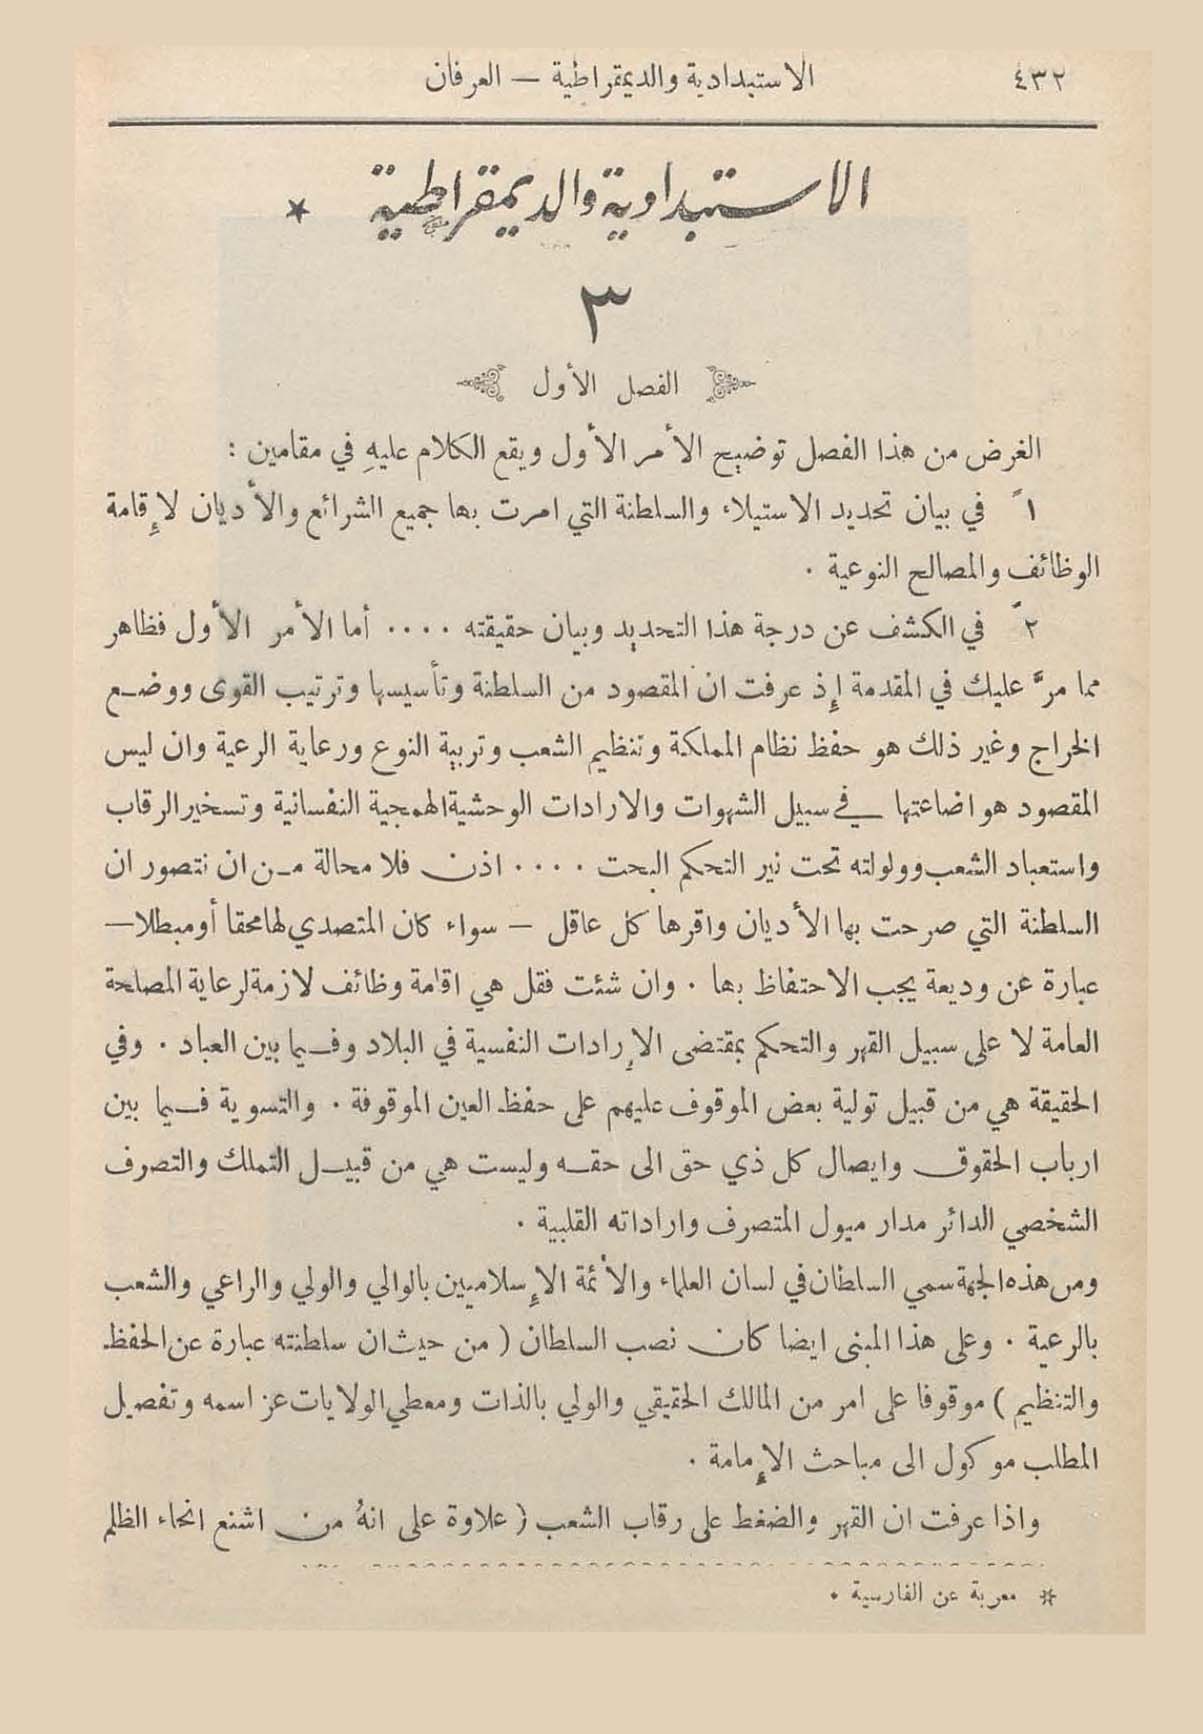 ٤٣٢
الاستبدادية والديمقراطية — العرفان
الاستبدادية والديمقراطية *
٣
الفصل الأول
الغرض من هذا الفصل توضيح الأمر الأول ويقع الكلام عليهِ في مقامين :
١ً في بيان تحديد الاستيلاء والسلطنة التي امرت بها جميع الشرائع والأديان لإقامة
الوظائف والمصالح النوعية .
٢ً في الكشف عن درجة هذا التحديد وبيان حقيقته .... أما الأمر الأول فظاهر
مما مرَّ عليك في المقدمة إذ عرفت ان المقصود من السلطنة وتأسيسها وترتيب القوى ووضع
الخراج وغير ذلك هو حفظ نظام المملكة وتنظيم الشعب وتربية النوع ورعاية الرعية وان ليس
المقصود هو اضاعتها في سبيل الشهوات والارادات الوحشية الهمجية النفسانية وتسخير الرقاب
واستعباد الشعب وولولته تحت نير التحكم البحت .... اذن فلا محالة من ان نتصور ان
السلطنة التي صرحت بها الأديان واقرها كل عاقل — سواء كان المتصدي لها محقا أو مبطلا —
عبارة عن وديعة يجب الاحتفاظ بها . وان شئت فقل هي اقامة وظائف لازمة لرعاية المصلحة
العامة لا على سبيل القهر والتحكم بمقتضى الإرادات النفسية في البلاد وفيما بين العباد . وفي
الحقيقة هي من قبيل تولية بعض الموقوف عليهم على حفظ العين الموقوفة . والتسوية فيما بين
ارباب الحقوق وايصال كل ذي حق الى حقه وليست هي من قبيل التملك والتصرف
الشخصي الدائر مدار ميول المتصرف واراداته القلبية .
ومن هذه الجهة سمي السلطان في لسان العلماء والأئمة الإسلاميين بالوالي والولي والراعي والشعب
بالرعية . وعلى هذا المبنى ايضا كان نصب السلطان ( من حيث ان سلطنته عبارة عن الحفظ
والتنظيم ) موقوفا على امر من المالك الحقيقي والولي بالذات ومعطي الولايات عز اسمه وتفصيل
المطلب موكول الى مباحث الإمامة .
واذا عرفت ان القهر والضغط على رقاب الشعب ( علاوة على انهُ من اشنع انحاء الظلم
* معربة عن الفارسية .